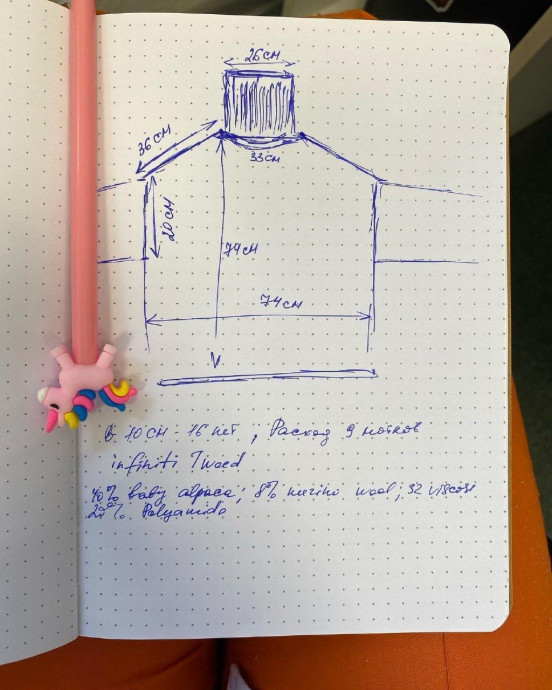 26 см
36 см
33 см
20 см
74 см
74 см
В 10 см - 16 пет, Расход 9 мотков
infiniti Tweed
40% baby alpaca; 8% merino wool; 32 viscose
20% Polyamide